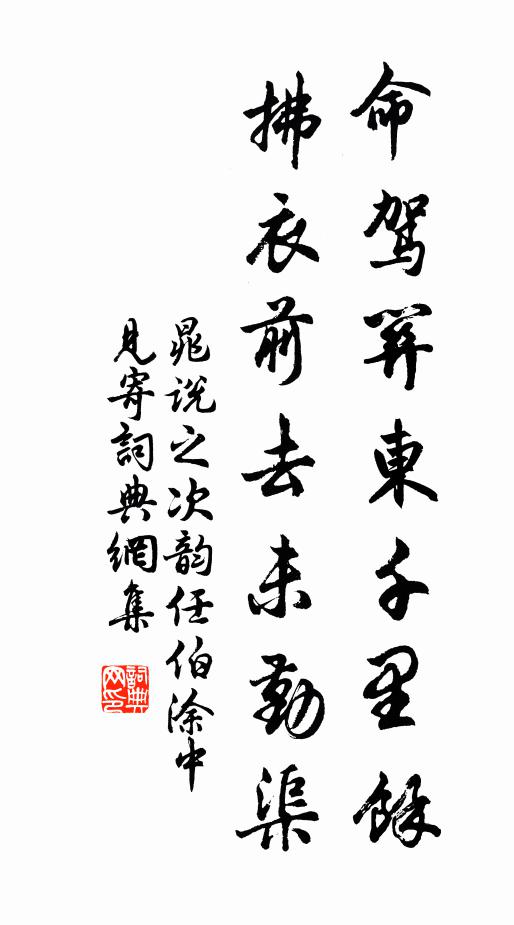 命駕關東千里餘
拂衣前去未勤渠
晁说之次韵任伯涂中
見寄詞典網集
詞典
网印